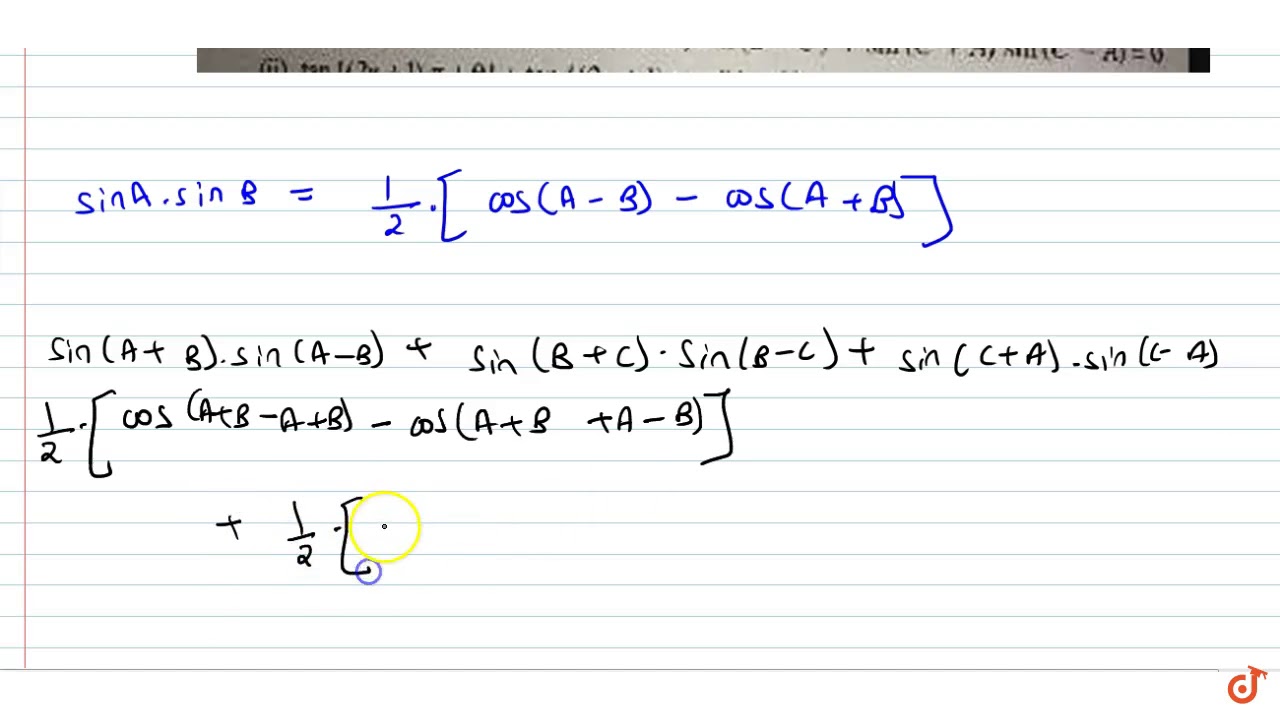 sin (C + A) sin (C - A) = 0
(ii) tan
sinA . sin B = 1/2 . [ cos(A - B) - cos(A + B) ]
sin(A + B) . sin(A - B) + sin(B + C) . sin(B - C) + sin(C + A) . sin(C - A)
1/2 . [ cos(A+B - A+B) - cos(A + B + A - B) ]
+ 1/2 . [